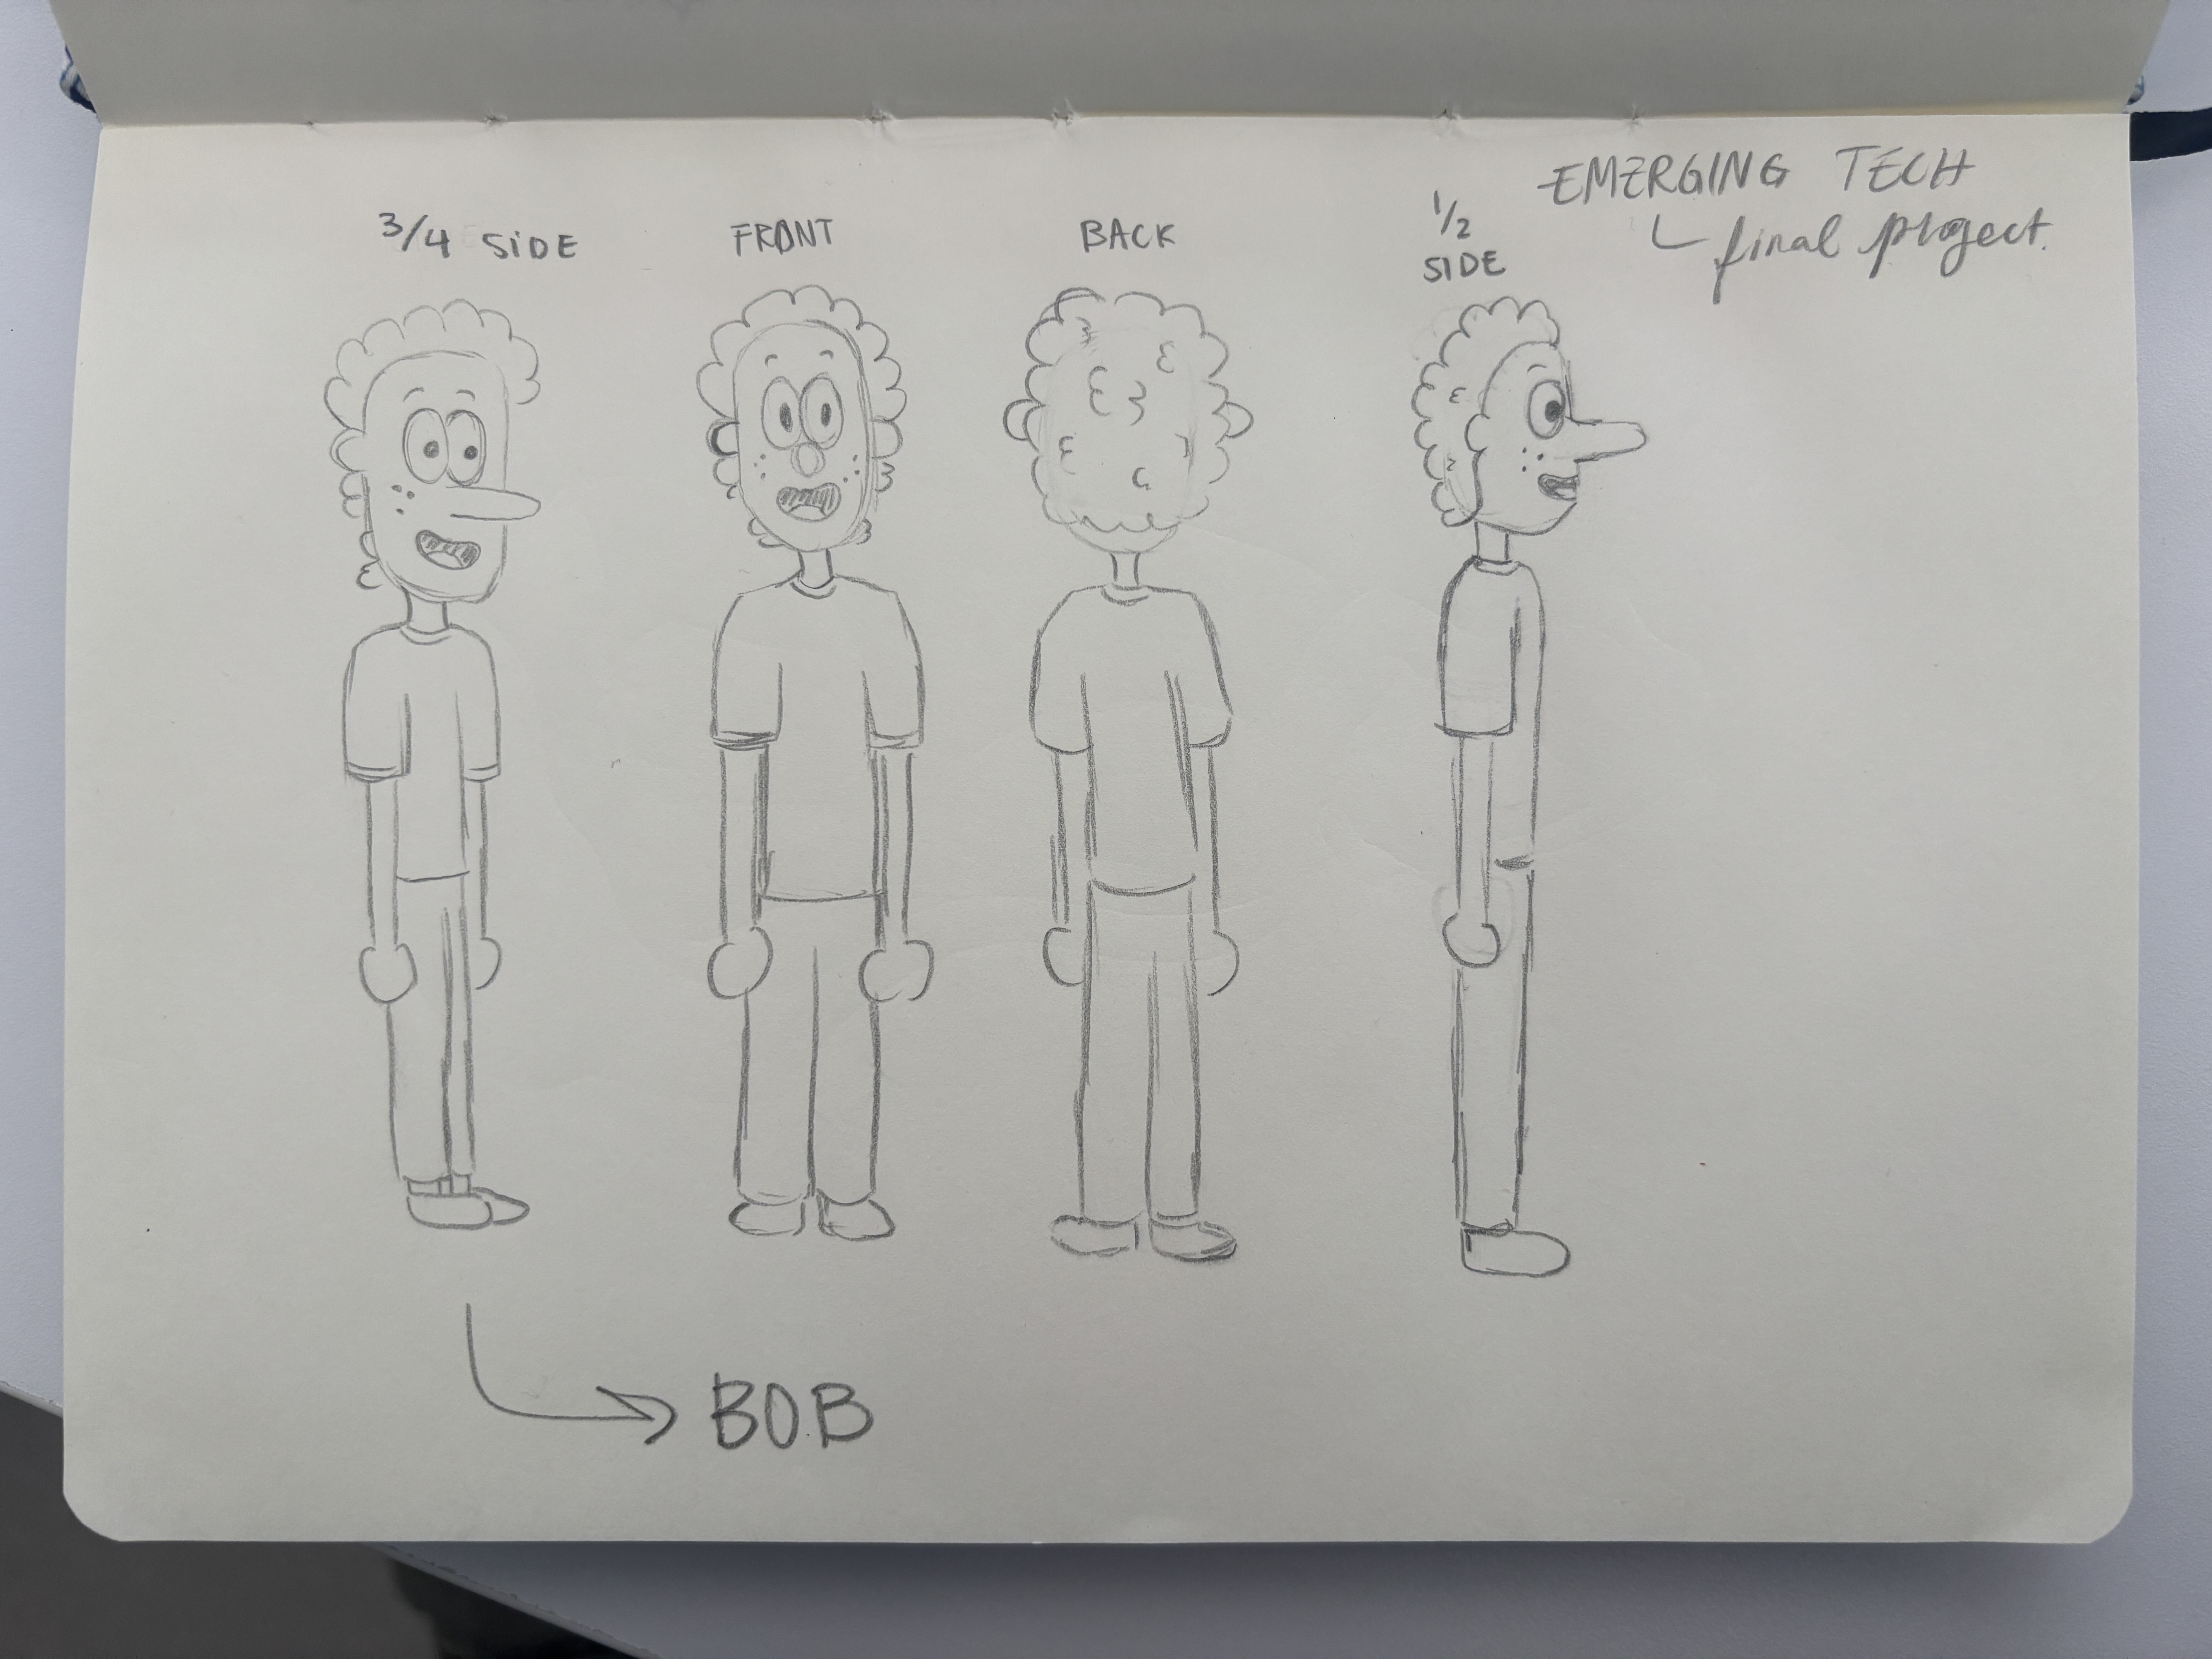 EMERGING TECH
final project.
3/4 SIDE
FRONT
BACK
1/2
SIDE
BOB